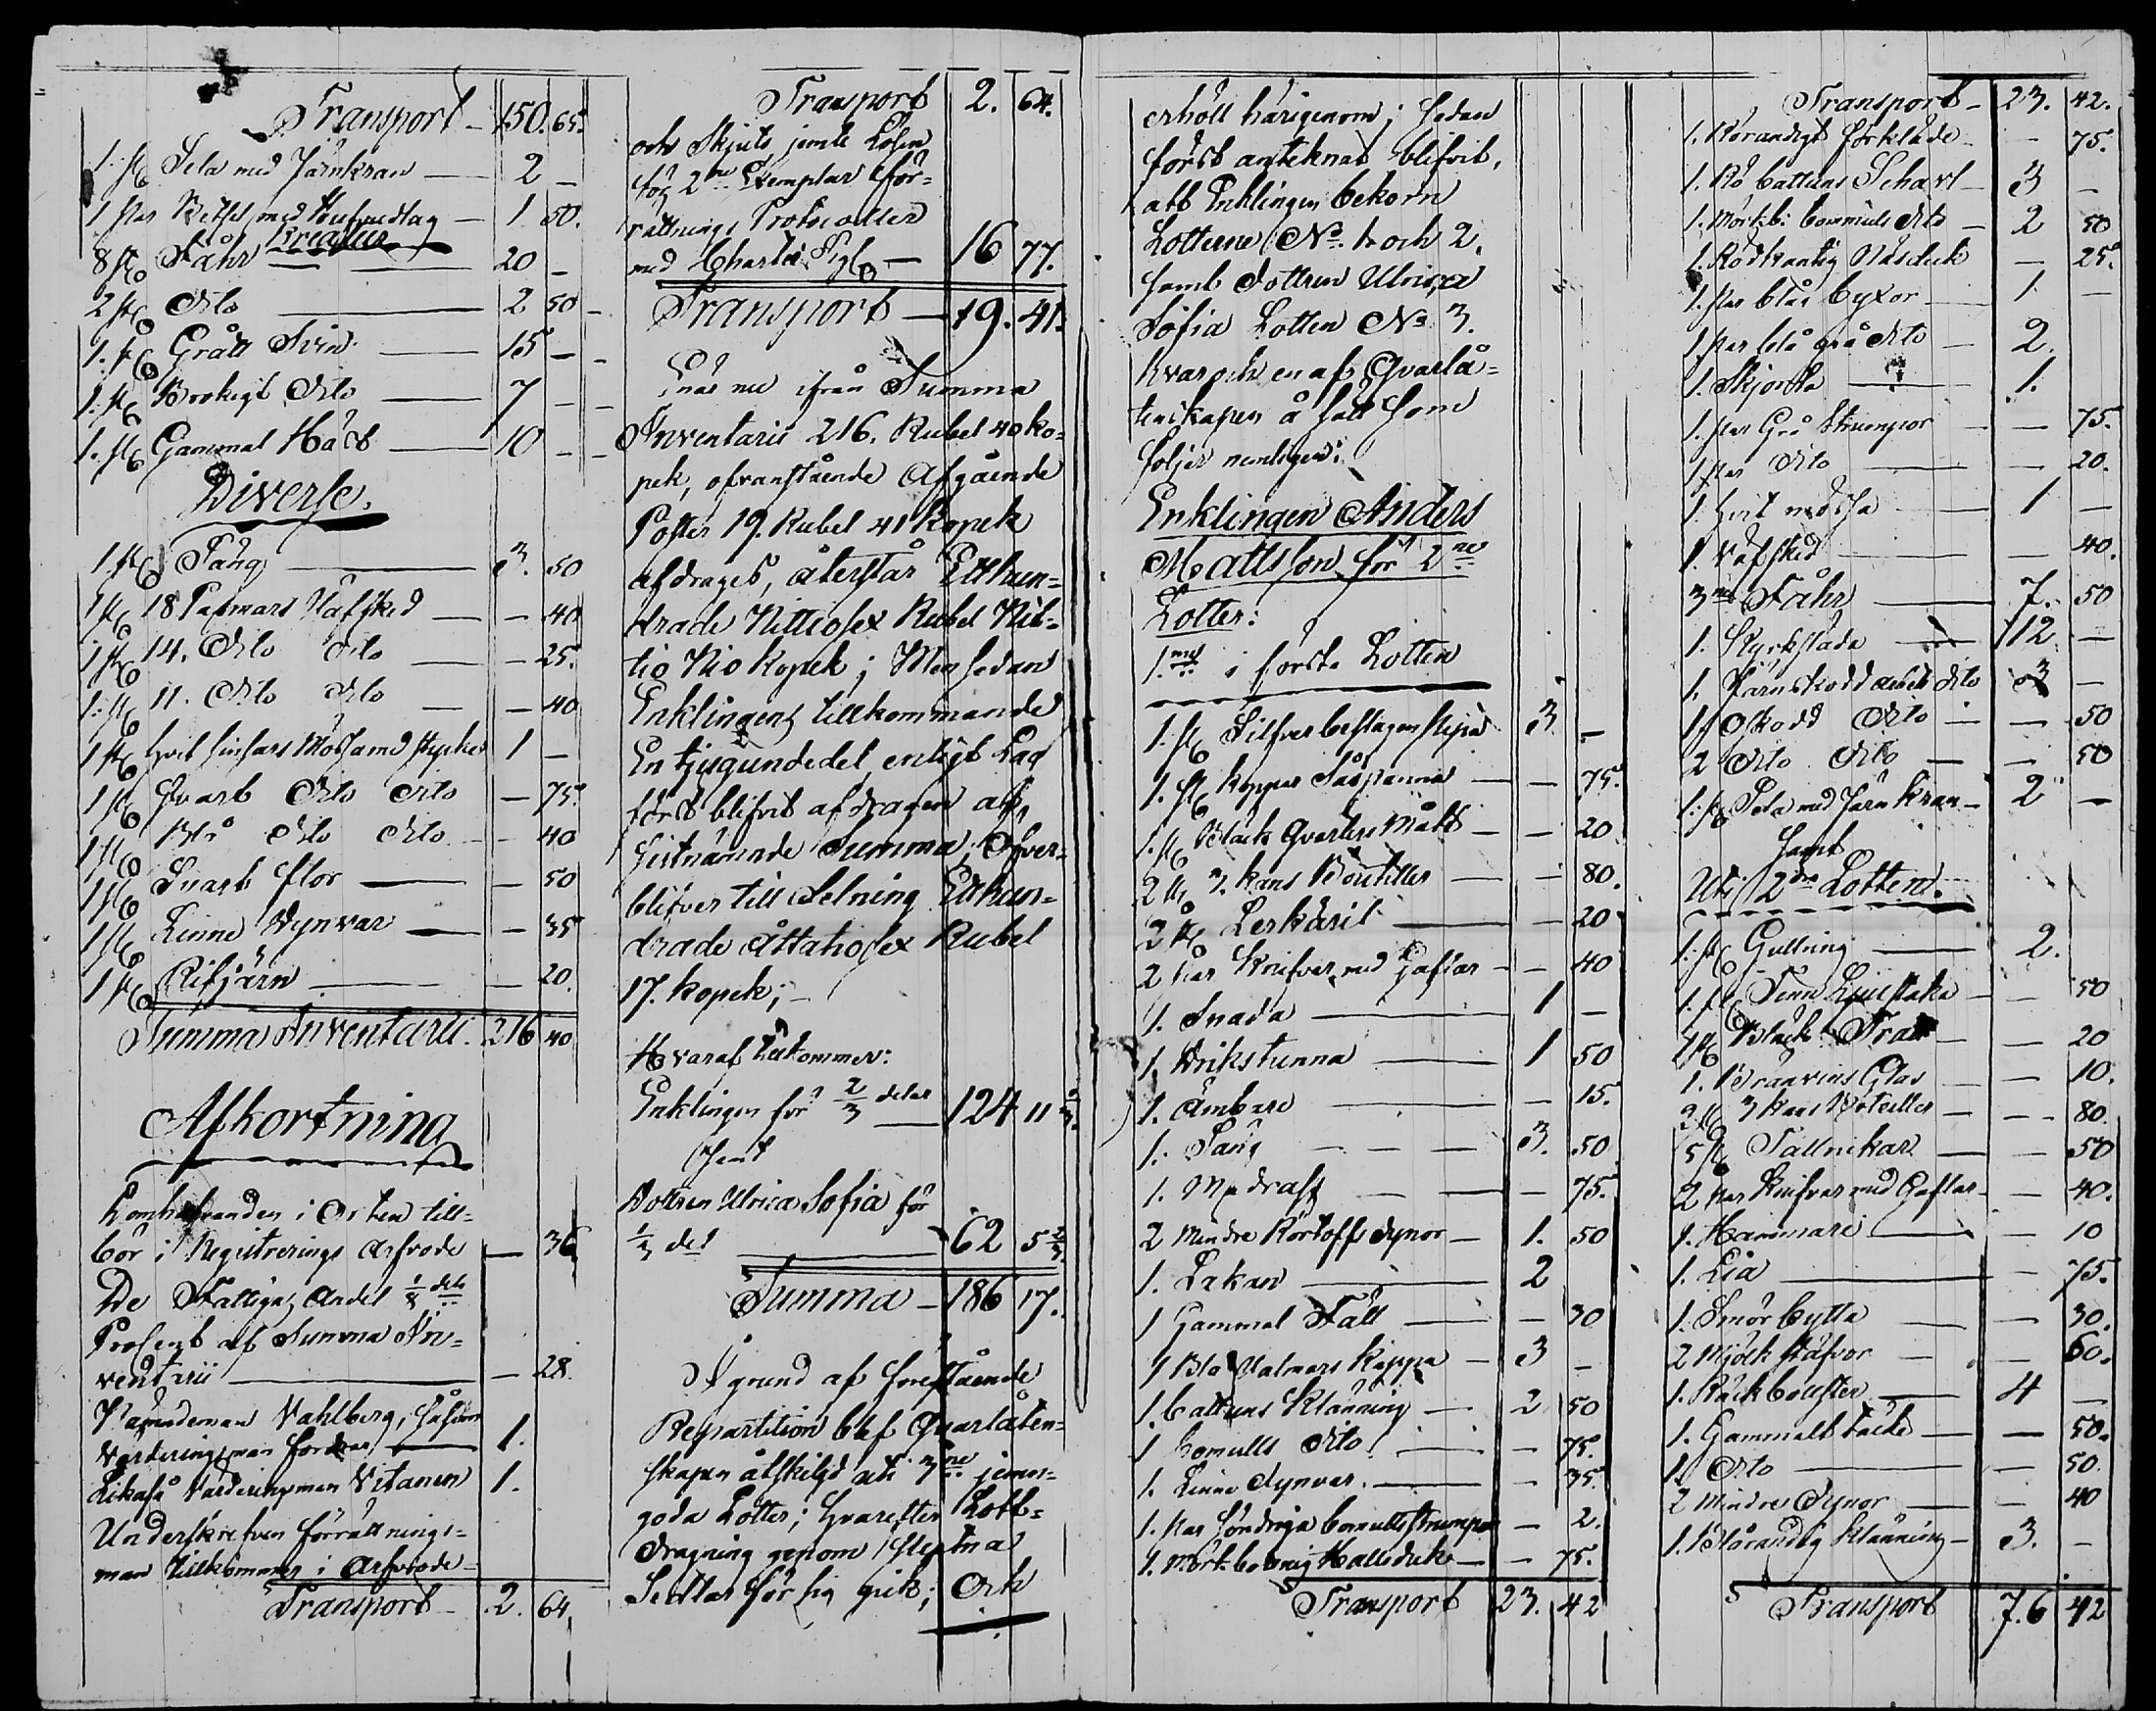 Transport - 150. 65.
1. st. Sela med Järnkran — 2 -
1 par Betsel med Hufvudlag — 1 50.
Kreatur
8 st. Fåhr — 20 -
2 st. Dito — 2 50 -
1. st. Grått Svin — 15 - -
1: st. Brokigt Dito — 7 - -
1. st. Gammal Häst — 10 - -
Diverse.
1 st. Säng — 3. 50
1 st. 18 Pasmars Väfsked — - 40
1 st. 14. Dito Dito — - 25.
1: st. 11. Dito Dito — - 40
1 st. hvit Mössa med stycke 1 -
1 st. Svart Dito Dito — 75.
1 st. Blå Dito Dito - - 40
1 st. Svart flor — - 50
1 st. Linne Dynvar — - 35
1 st. Rifjärn — — 20.
Summa Inventarii. 216 40
Afkortning
i Orten till-
bör i Registrerings Arfvode — 36
De Fattigas Andel 1/8 dels
Prosent af Summa In-
ventarii — - 28.
Nämndeman Vahlberg, såsom
Värderingsman fordrar — 1.
Likaså Värderingsman Vitanen 1.
Underskrefven förrättnings-
man tillkommer i Arfvode -
Transport - 2. 64.
Transport 2. 64.
och Skjuts jemte Lösen
för 2ne Exemplar för-
rättnings Protocoller
med Charta Sigl. — 16 77.
Transport — 19. 41.
Enär nu ifrån Summa
Inventarii 216. Rubel 40 ko-
pek, ofvanstående Afgående
Poster 19. Rubel 41 Kopek
afdrages, återstår Etthun-
drade Nittiosex Rubel Nit-
tio Nio Kopek; Men sedan
Enklingens tillkommande
En tjugundedel enligt Lag
först blifvit afdragen af
sistnämnde Summa, Öfver-
blifver till delning Etthun-
drade Åttatiosex Rubel
17. kopek; -
Hvaraf tillkommer:
Enklingen för 2/3 delar — 124 11 1/3.
Samt
Dottren Ulrica Sofia för
1/3 del — 62 5 2/3.
Summa - 186 17.
På grund af förestående
Repartition blef Qvarlåten-
skapen åtskiljd uti 3ne jemn-
goda Lotter; hvarefter Lott-
dragning genom skrefna
Sedlar för sig gick; Och
erhöll härigenom; sedan
först anteknat blifvit,
att Enklingen bekom
Lotterne No. 1. och 2.
samt Dottren Ulrica
Sofia Lotten No. 3.
hvar och en af Qvarlå-
tenskapen å sätt som
följer nemligen:
Enklingen Anders
Mattsson för 2ne
Lotter:
1.mo i första Lotten
1. st. Silfverbeslagen pipa 3. -
1. st. koppar Såspanna — - 75.
1. st. Bläck Qvarters Mått — - 20.
2 st. 3. kans Bouteiller — - 80.
2 st. Lerkäril — - 20
2 par Knifvar med Gafflar - - 40
1. Snada — 1 -
1. Drikstunna — 1 50
1. Ämbare — - 15.
1. Säng - - - 3. 50.
1. Madrass — - 75.
2 Mindre Körtoffs dynor — 1. 50
1. Lakan — 2
1 Gammal Fäll — - 30
1 Blå Valmars kappa — 3 -
1. Cattuns Klänning — 2 50
1 bomulls Dito — - 75.
1. Linne dynvar. — - 35.
1. par söndriga bomulls strumpor — 2.
1. Mörkbottnig Halsduk — - 75.
Transport 23. 42
Transport - 23. 42.
1. Rörandigt förkläde - - 75.
1. Rö Cattuns Scharl — 3 -
1. Mörkb: bommuls Dito — 2 50
1. Rödkantig Näsduk — 25.
1. par blåa byxor — 1 -
1 par blå grå Dito — 2.
1. Skjorta — 1.
1. par Grå Strumpor — 75.
1 par Dito — 20.
1 hvit mössa — 1 -
1. Väfsked — 40.
3ne Fåhr — 7. 50
1. Kyrkslåda — 12 —
1. Järnskodd arbets Dito 3 -
1 Oskodd Dito — - 50
2 Dito Dito — - 50
1. st. Sela med Järn kran - 2 -
Samt
Uti 2dre Lotten.
1. st. Gullring — 2.
1. st. Tenn Ljusstaka — - 50
1 st. Bläck Tratt — - 20
1. Branvins Glas — - 10.
2 st. 3 kans Bouteiller — - 80.
5 st. Tallrikar — - 50
2 par Knifvar med Gafflar - - 40.
1. Hammare — - 10
1. Lia — - 75.
1. Smör bytta — - 30.
2 Mjölk stäfvor — - 60.
1. Räckbolster — 4 -
1. Gammalt täcke — - 50.
1. Dito — - 50.
2 Mindre Dynor — - 40
1. Blårandig klänning - 3. -
Transport 7.6 42